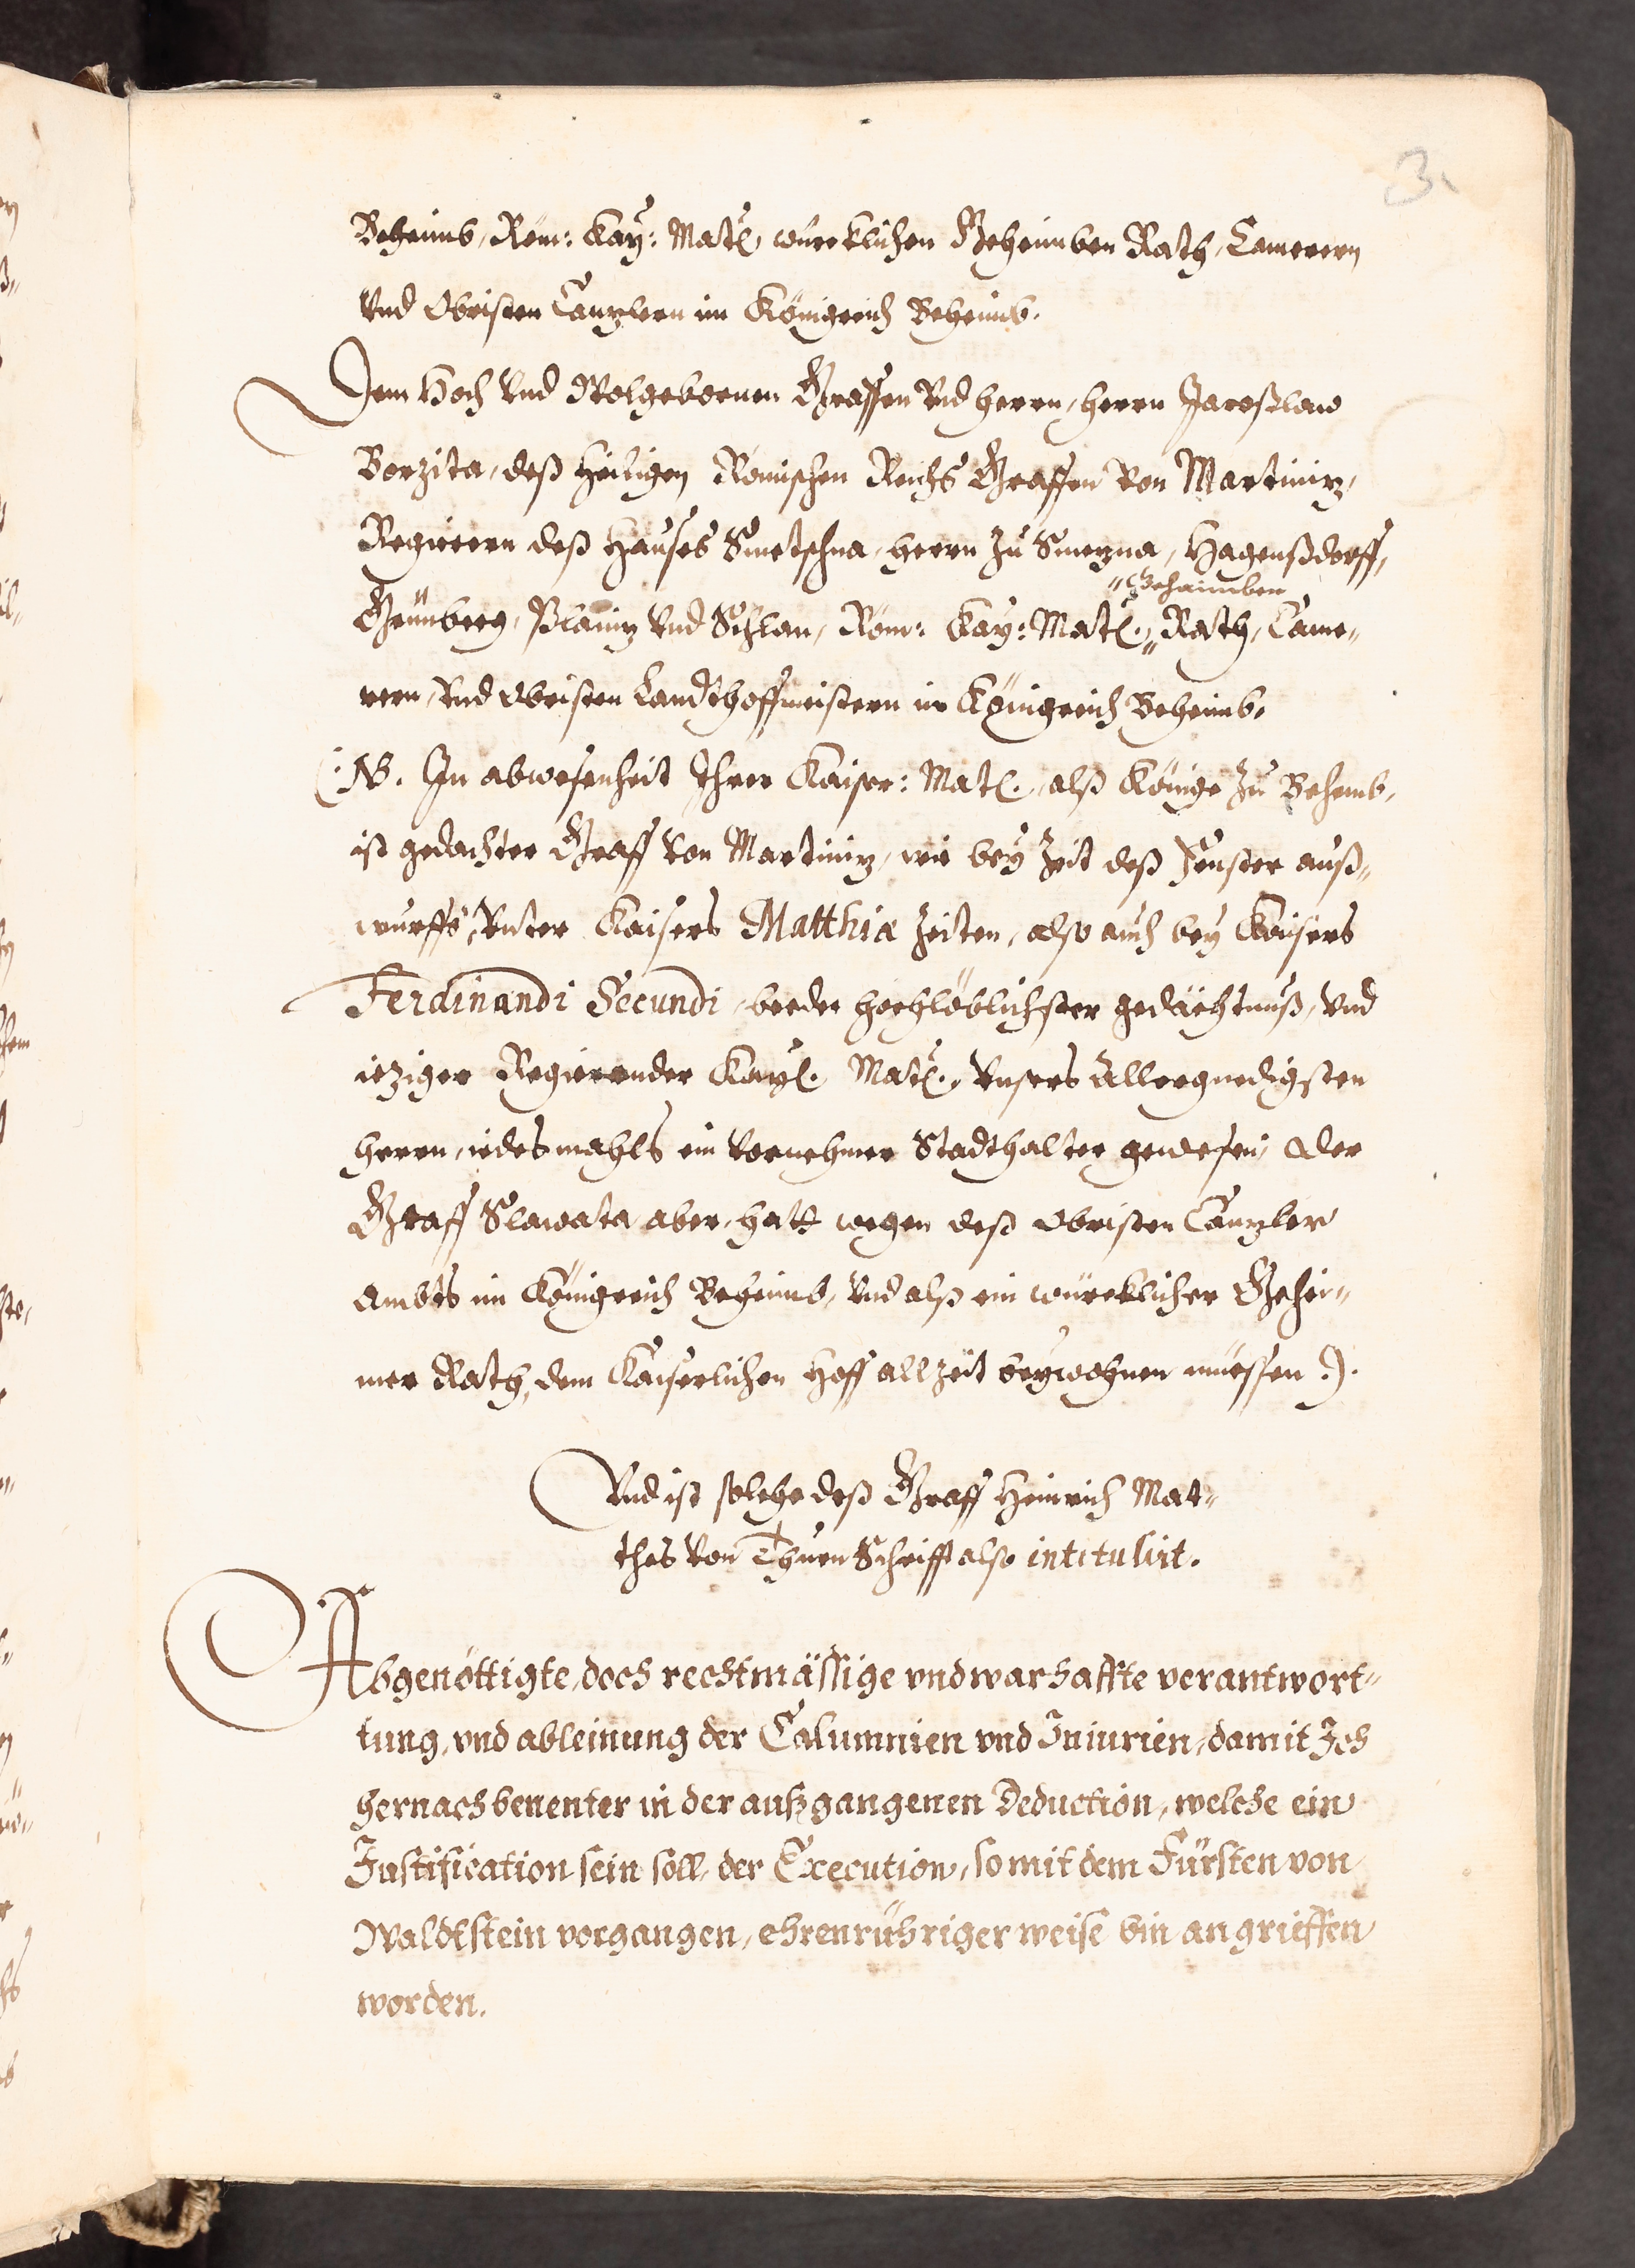 3.
Beheimb, Röm: Kay: Matt. würcklichen Geheimben Rath, Camerern
Vnd Obristen Canzlern im Königreich Beheimb.
Dem Hoch Vnd Wolgebornen Graffen Vnd Herrn, Herrn Jaroßlaw
Borzita, deß Heiligen Römischen Reichs Graffen Von Martiniz,
Regierern deß Hauses Smetschna, Herrn Zu Smezna, Hagenßdorff,
"Gehaimben
Grünberg, Planiz Vnd Schlan, Röm: Kay: Matt. „ Rath, Came„
rern, Vnd Obristen Landthoffmeistern im Königreich Beheimb.
(: NB. In abwesenheit Ihrer Kaiser: Matt. alß Königs Zu Behemb,
ist gedachter Graff Von Martiniz, wie bey Zeit deß Fenster auß„
wurffs, Vnter Kaisers Matthiæ Zeiten, also auch bey Kaisers
Ferdinandi Secundi, beeder hochlöblichster gedächtnuß, Vnd
ieziger Regierender Kayl. Matt. Vnsers Allergnedigsten
Herrn, iedesmahls ein Vornehmer Stadthalter gewesen, Der
Graff Slawata aber, hatt wegen deß Obristen Canzler
Ambts im Königreich Beheimb, Vnd alß ein würcklicher Gehei„
mer Rath, dem Kaiserlichen Hoff allzeit beywohnen müessen :).
Vnd ist solche deß Graff Heinrich Mat„
thes Von Thurn Schrifft also intitulirt.
Abgenöttigte, doch rechtmässige vnd warhaffte verantwort„
tung, vnd ableinung der Calumnien vnd Iniurien, damit Ich
hernach benenter in der außgangenen Deduction, welche ein
Justification sein soll, der Execution, so mit dem Fürsten von
Waldtstein vorgangen, ehrenrühriger weise bin angrieffen
worden.